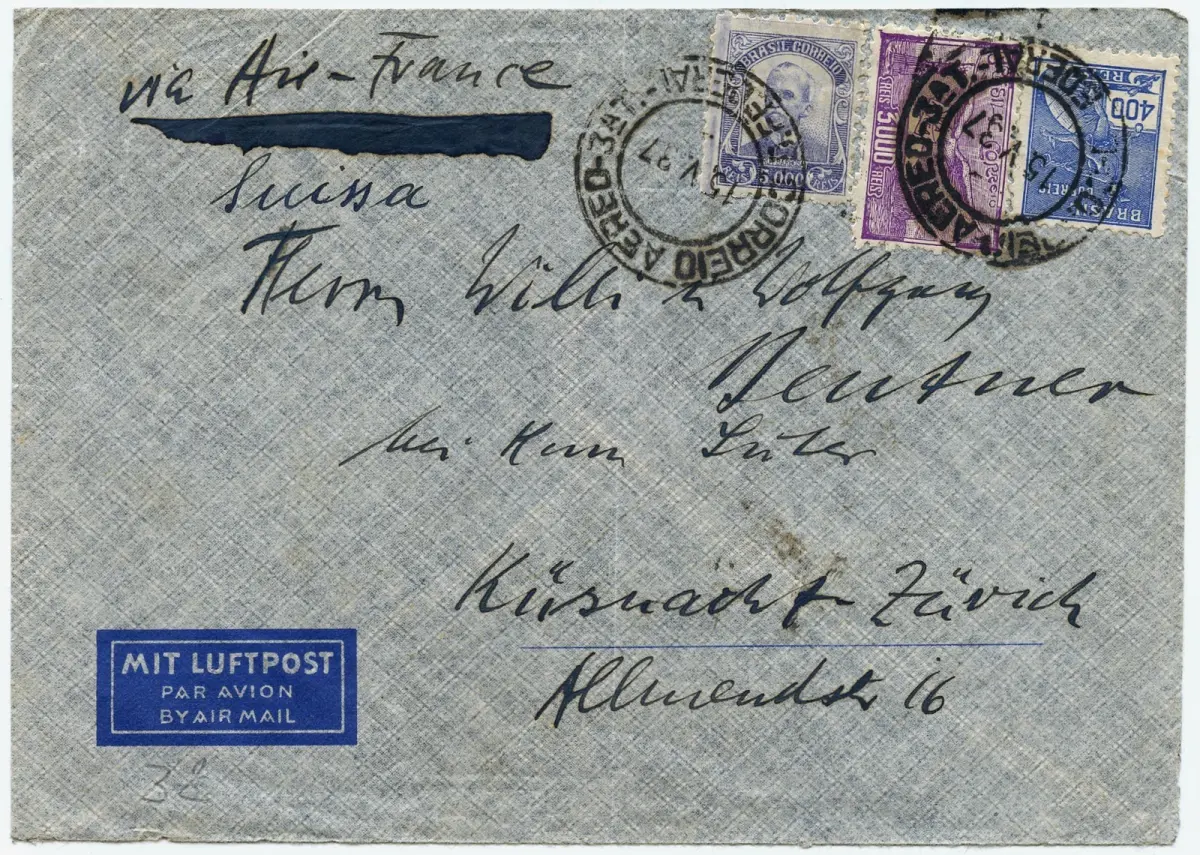 via Air-France
Suissa
Herrn Willi u Wolfgang
Bentner
bei
Küsnacht-Zürich
Allmendstr 16
MIT LUFTPOST
PAR AVION
BY AIR MAIL
BRASIL CORREIO
REIS 5.000 REIS
REIS 5000 REIS
Correio
400 REIS
BRASIL CORREIO
CORREIO AEREO-3ªT.
15 V 37
CORREIO AEREO-3ªT.
15 V 37